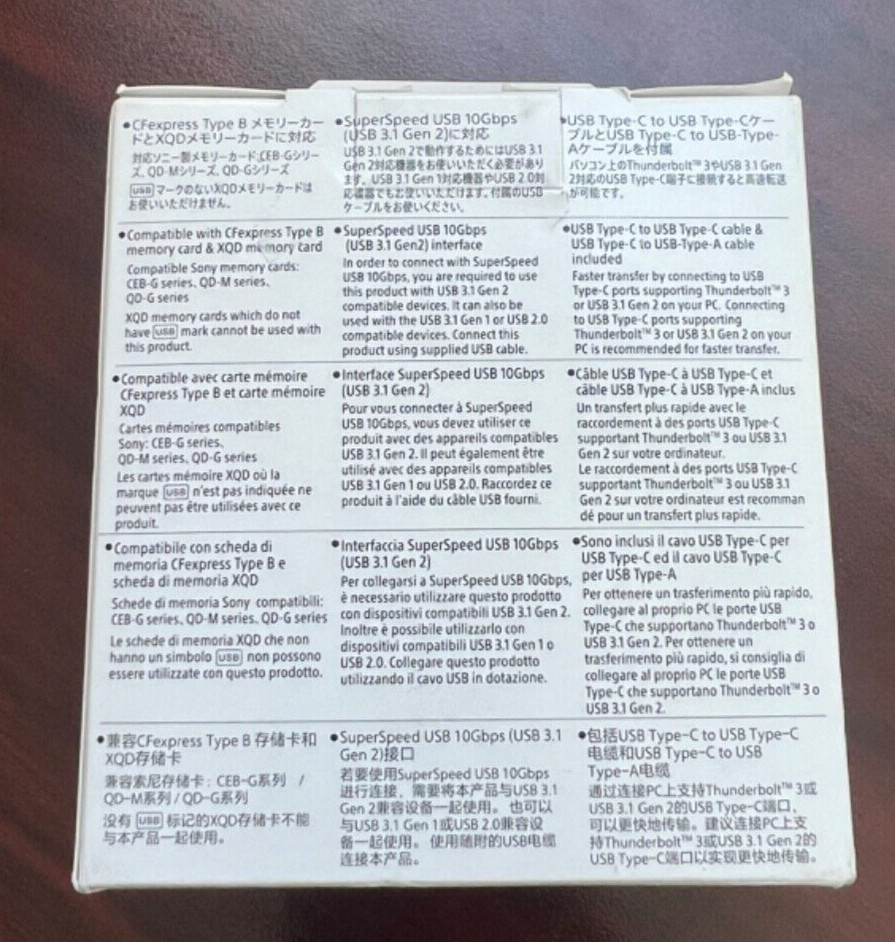 ●CFexpress Type B メモリーカー
ドとXQDメモリーカードに対応
対応ソニー製メモリーカード:CEB-Gシリー
ズ、QD-Mシリーズ、QD-Gシリーズ
USB マークのないXQDメモリーカードは
お使いいただけません。
●SuperSpeed USB 10Gbps
(USB 3.1 Gen 2)に対応
USB 3.1 Gen 2で動作するためにはUSB 3.1
Gen 2対応機器をお使いいただく必要があり
ます。USB 3.1 Gen 1対応機器やUSB 2.0対
応機器でもお使いいただけます。付属のUSB
ケーブルをお使いください。
●USB Type-C to USB Type-Cケー
ブルとUSB Type-C to USB-Type-
Aケーブルを付属
パソコン上のThunderbolt™ 3やUSB 3.1 Gen
2対応のUSB Type-C端子に接続すると高速転送
が可能です。
●Compatible with CFexpress Type B
memory card & XQD memory card
Compatible Sony memory cards:
CEB-G series、QD-M series、
QD-G series
XQD memory cards which do not
have USB mark cannot be used with
this product.
●SuperSpeed USB 10Gbps
(USB 3.1 Gen2) interface
In order to connect with SuperSpeed
USB 10Gbps, you are required to use
this product with USB 3.1 Gen 2
compatible devices. It can also be
used with the USB 3.1 Gen 1 or USB 2.0
compatible devices. Connect this
product using supplied USB cable.
●USB Type-C to USB Type-C cable &
USB Type-C to USB-Type-A cable
included
Faster transfer by connecting to USB
Type-C ports supporting Thunderbolt™ 3
or USB 3.1 Gen 2 on your PC. Connecting
to USB Type-C ports supporting
Thunderbolt™ 3 or USB 3.1 Gen 2 on your
PC is recommended for faster transfer.
●Compatible avec carte mémoire
CFexpress Type B et carte mémoire
XQD
Cartes mémoires compatibles
Sony: CEB-G series、
QD-M series、QD-G series
Les cartes mémoire XQD où la
marque USB n'est pas indiquée ne
peuvent pas être utilisées avec ce
produit.
●Interface SuperSpeed USB 10Gbps
(USB 3.1 Gen 2)
Pour vous connecter à SuperSpeed
USB 10Gbps, vous devez utiliser ce
produit avec des appareils compatibles
USB 3.1 Gen 2. Il peut également être
utilisé avec des appareils compatibles
USB 3.1 Gen 1 ou USB 2.0. Raccordez ce
produit à l'aide du câble USB fourni.
●Câble USB Type-C à USB Type-C et
câble USB Type-C à USB Type-A inclus
Un transfert plus rapide avec le
raccordement à des ports USB Type-C
supportant Thunderbolt™ 3 ou USB 3.1
Gen 2 sur votre ordinateur.
Le raccordement à des ports USB Type-C
supportant Thunderbolt™ 3 ou USB 3.1
Gen 2 sur votre ordinateur est recomman
dé pour un transfert plus rapide.
●Compatibile con scheda di
memoria CFexpress Type B e
scheda di memoria XQD
Schede di memoria Sony compatibili:
CEB-G series、QD-M series、QD-G series
Le schede di memoria XQD che non
hanno un simbolo USB non possono
essere utilizzate con questo prodotto.
●Interfaccia SuperSpeed USB 10Gbps
(USB 3.1 Gen 2)
Per collegarsi a SuperSpeed USB 10Gbps,
è necessario utilizzare questo prodotto
con dispositivi compatibili USB 3.1 Gen 2.
Inoltre è possibile utilizzarlo con
dispositivi compatibili USB 3.1 Gen 1 o
USB 2.0. Collegare questo prodotto
utilizzando il cavo USB in dotazione.
●Sono inclusi il cavo USB Type-C per
USB Type-C ed il cavo USB Type-C
per USB Type-A
Per ottenere un trasferimento più rapido,
collegare al proprio PC le porte USB
Type-C che supportano Thunderbolt™ 3 o
USB 3.1 Gen 2. Per ottenere un
trasferimento più rapido, si consiglia di
collegare al proprio PC le porte USB
Type-C che supportano Thunderbolt™ 3 o
USB 3.1 Gen 2.
●兼容CFexpress Type B 存储卡和
XQD存储卡
兼容索尼存储卡：CEB-G系列 /
QD-M系列 / QD-G系列
没有 USB 标记的XQD存储卡不能
与本产品一起使用。
●SuperSpeed USB 10Gbps (USB 3.1
Gen 2)接口
若要使用SuperSpeed USB 10Gbps
进行连接，需要将本产品与USB 3.1
Gen 2兼容设备一起使用。也可以
与USB 3.1 Gen 1或USB 2.0兼容设
备一起使用。使用随附的USB电缆
连接本产品。
●包括USB Type-C to USB Type-C
电缆和USB Type-C to USB
Type-A电缆
通过连接PC上支持Thunderbolt™ 3或
USB 3.1 Gen 2的USB Type-C端口，
可以更快地传输。建议连接PC上支
持Thunderbolt™ 3或USB 3.1 Gen 2的
USB Type-C端口以实现更快地传输。